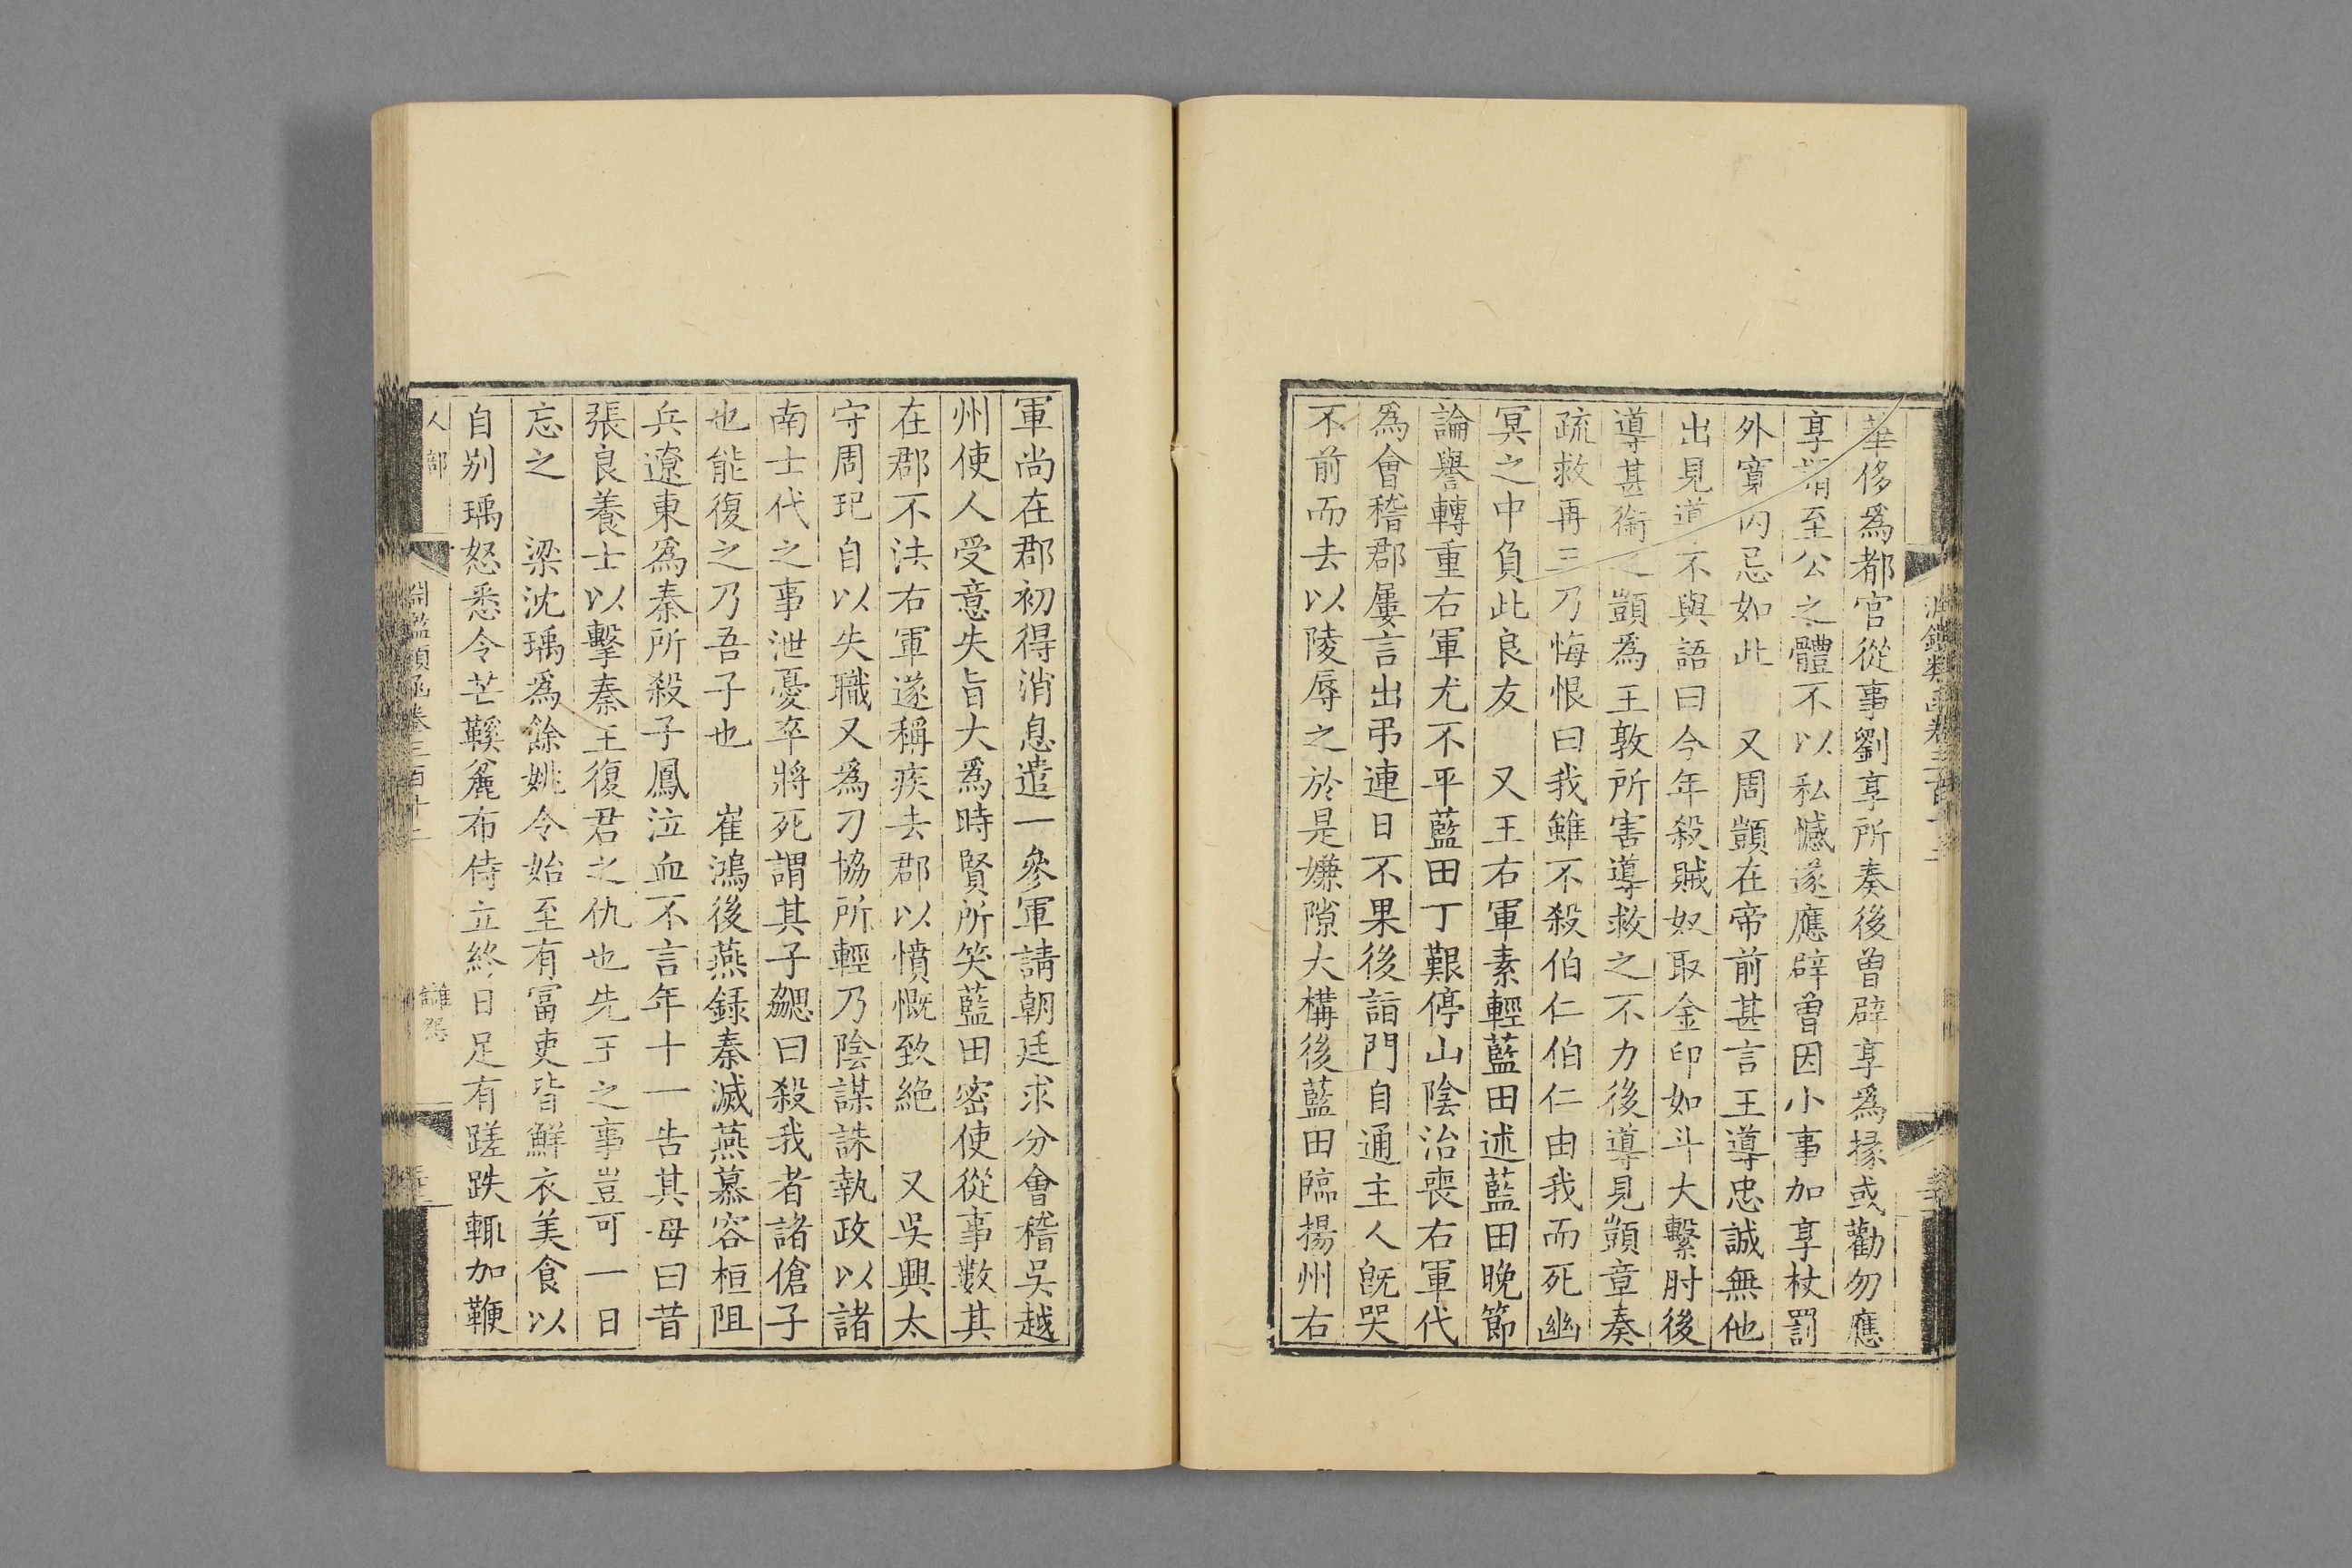 華侈爲都官從事劉享所奏後曾辟享爲掾或勸勿應
享謂至公之體不以私憾遂應辟曾因小事加享杖罰
外寛内忌如此　又周顗在帝前甚言王導忠誠無他
出見導不與語曰今年殺賊奴取金印如斗大繫肘後
導甚銜之顗爲王敦所害導救之不力後導見顗章奏
疏救再三乃悔恨曰我雖不殺伯仁伯仁由我而死幽
冥之中負此良友　又王右軍素輕藍田述藍田晚節
論譽轉重右軍尤不平藍田丁艱停山陰治喪右軍代
爲會稽郡屢言出弔連日不果後詣門自通主人旣哭
不前而去以陵辱之於是嫌隙大構後藍田臨揚州右
軍尚在郡初得消息遣一參軍請朝廷求分會稽吳越
州使人受意失旨大爲時賢所笑藍田密使從事數其
在郡不法右軍遂稱疾去郡以憤慨致絶　又吳興太
守周玘自以失職又爲刁協所輕乃陰謀誅執政以諸
南士代之事泄憂卒將死謂其子勰曰殺我者諸傖子
也能復之乃吾子也　崔鴻後燕録秦滅燕慕容桓阻
兵遼東爲秦所殺子鳳泣血不言年十一告其母曰昔
張良養士以擊秦王復君之仇也先王之事豈可一日
忘之　梁沈瑀爲餘姚令始至有富吏皆鮮衣美食以
自別瑀怒悉令芒鞵麄布侍立終日足有蹉跌輒加鞭
人部
淵鑑類函卷三百十二
讎怨